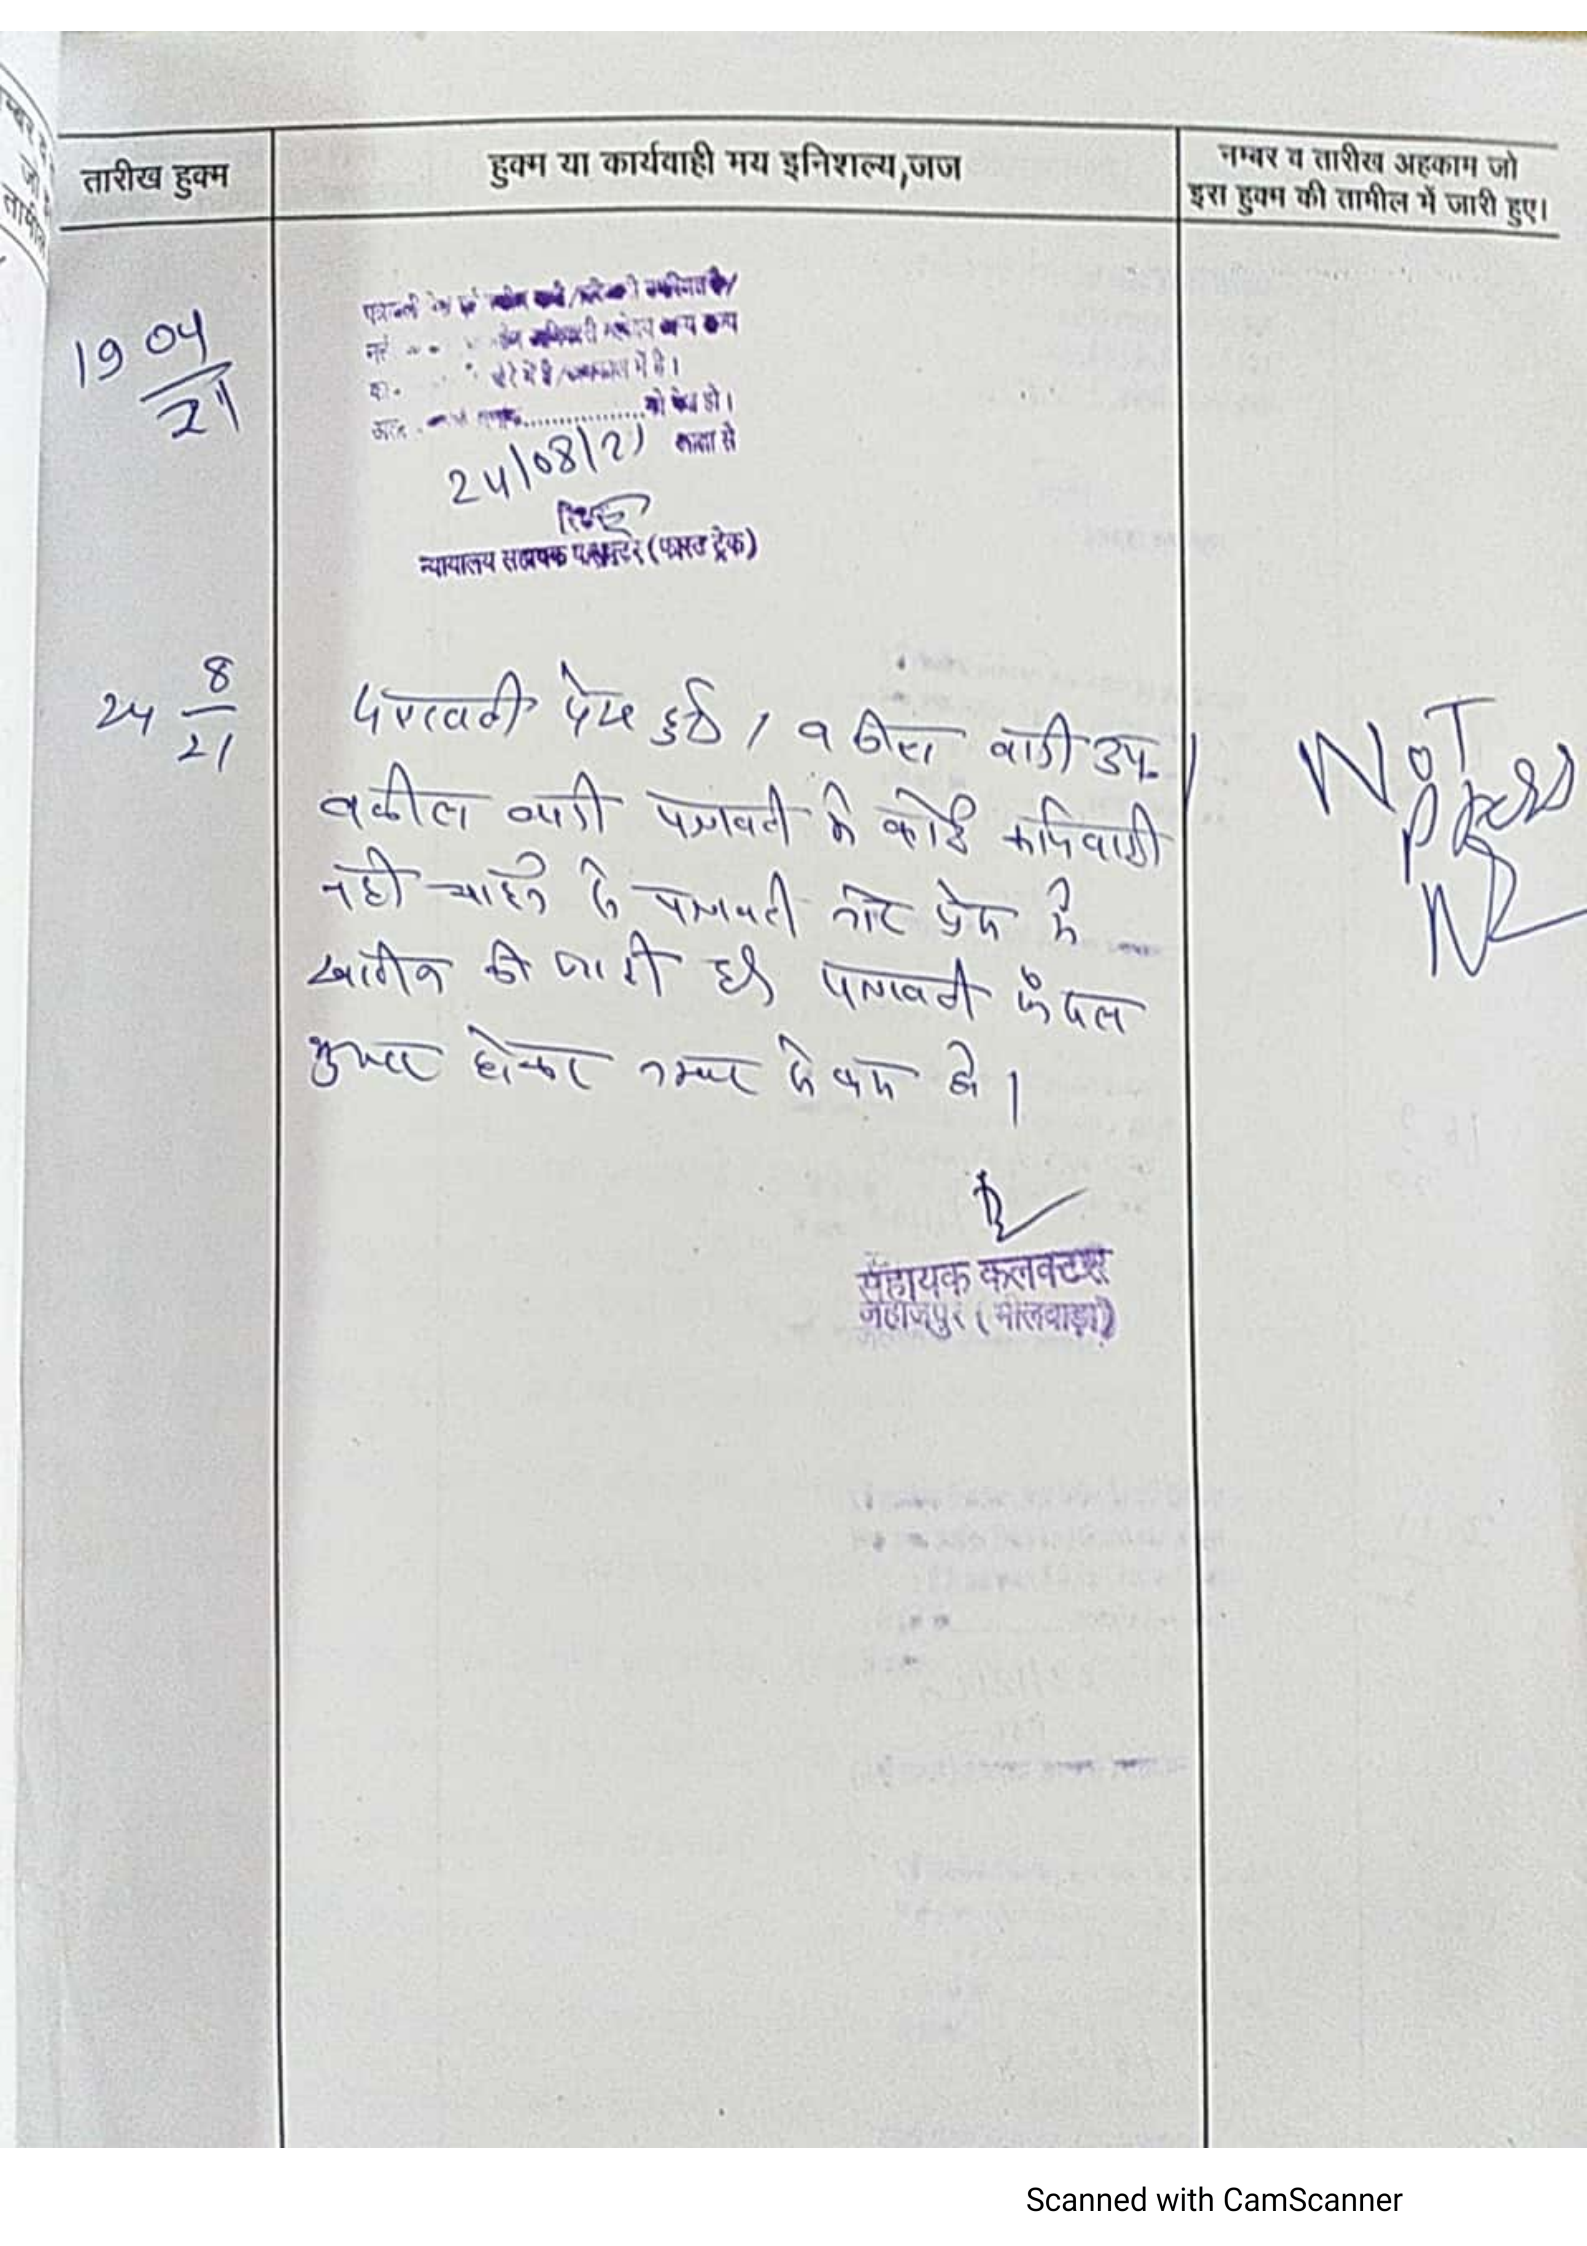 तारीख हुक्म
हुक्म या कार्यवाही मय इनिशल्य,जज
नम्बर व तारीख अहकाम जो
इस हुक्म की तामील में जारी हुए।
19 04
21
में है।
को पेश हो।
24/08/21
न्यायालय सहायक कलक्टर (फास्ट ट्रेक)
24 8
21
पत्रावली पेश हुई। वकील वादी उप।
वकील वादी पत्रावली में कोई कार्यवाही
नहीं चाहते है पत्रावली नोट प्रेस में
खारीज की जाती है। पत्रावली फैसल
शुमार होकर नम्बर से कम हो।
NOT
Press
सहायक कलक्टर
जहाजपुर (भीलवाड़ा)
Scanned with CamScanner